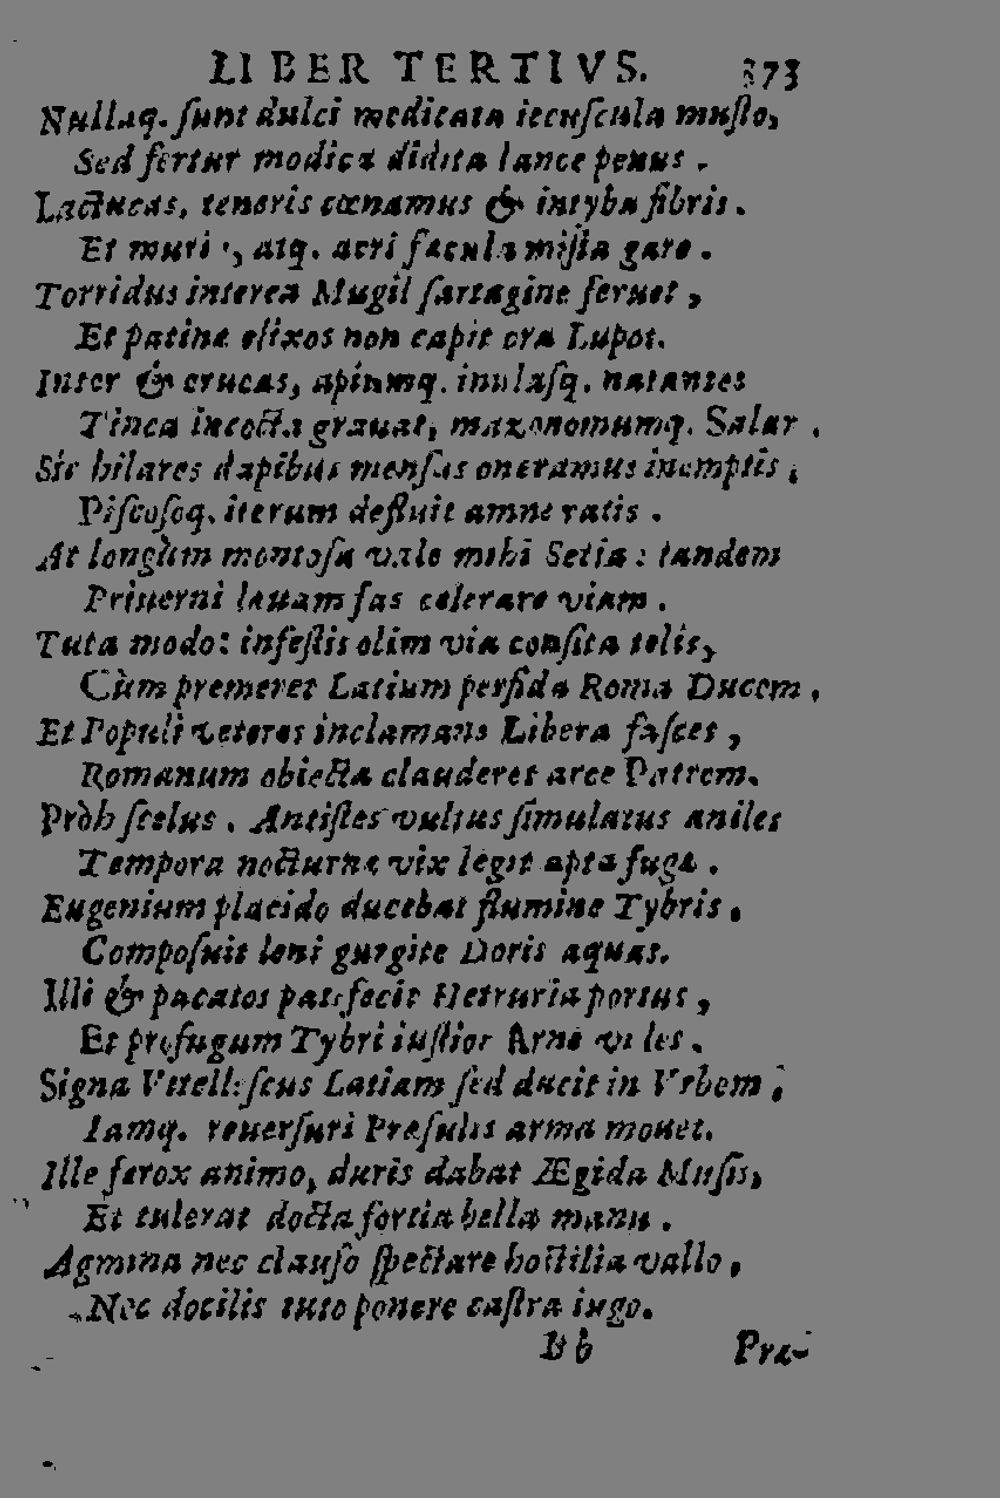 LIBER TERTIVS. 373
Nullaq. ſunt dulci medicata iecuſcula muſto,
Sed fertur modica didita lance penus.
Lactucas, teneris cœnamus & intyba fibris.
Et muri, atq. acri fæcula miſta garo.
Torridus interea Mugil ſartagine feruet,
Et patinæ elixos non capit ora Lupos.
Inter & erucas, apiumq. inulaſq. natantes
Tinca incocta grauat, mazonomumq. Salar.
Sic hilares dapibus menſas oneramus inemptis,
Piſcoſoq. iterum defluit amne ratis.
At longùm montoſa vale mihi Setia: tandem
Priuerni læuam fas celerare viam.
Tuta modo: infeſtis olim via conſita telis,
Cùm premeret Latium perfida Roma Ducem,
Et Populi veteres inclamans Libera faſces,
Romanum obiecta clauderet arce Patrem.
Pròh ſcelus. Antiſtes vultus ſimulatus aniles
Tempora nocturnæ vix legit apta fugæ.
Eugenium placido ducebat flumine Tybris.
Compoſuit leni gurgite Doris aquas.
Illi & pacatos patefecit Hetruria portus,
Et profugum Tybri iuſtior Arne vehes.
Signa Vitelleſcus Latiam ſed ducit in Vrbem;
Iamq. reuerſuri Præſulis arma mouet.
Ille ferox animo, duris dabat Ægida Muſis,
Et tulerat docta fortia bella manu.
Agmina nec clauſo ſpectare hoſtilia vallo,
Nec docilis tuto ponere caſtra iugo.
Bb Præ-